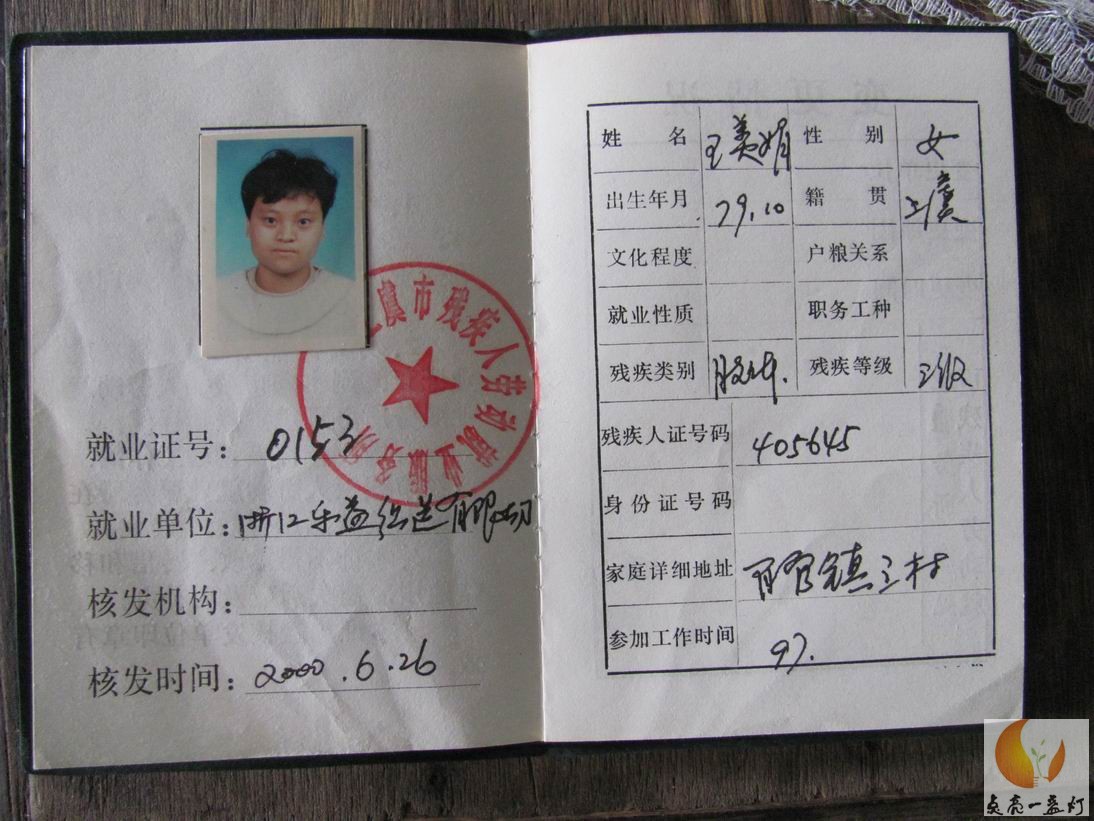 上虞市残疾人劳动就业服务所
就业证号: 0153
就业单位: 浙江乐益织造有限公司
核发机构:
核发时间: 2000.6.26
姓名 王美娟 性别 女
出生年月 79.10 籍贯 上虞
文化程度 户粮关系
就业性质 职务工种
残疾类别 肢体. 残疾等级
残疾人证号码 405645
身份证号码
家庭详细地址 百官镇
参加工作时间 97.
点亮一盏灯